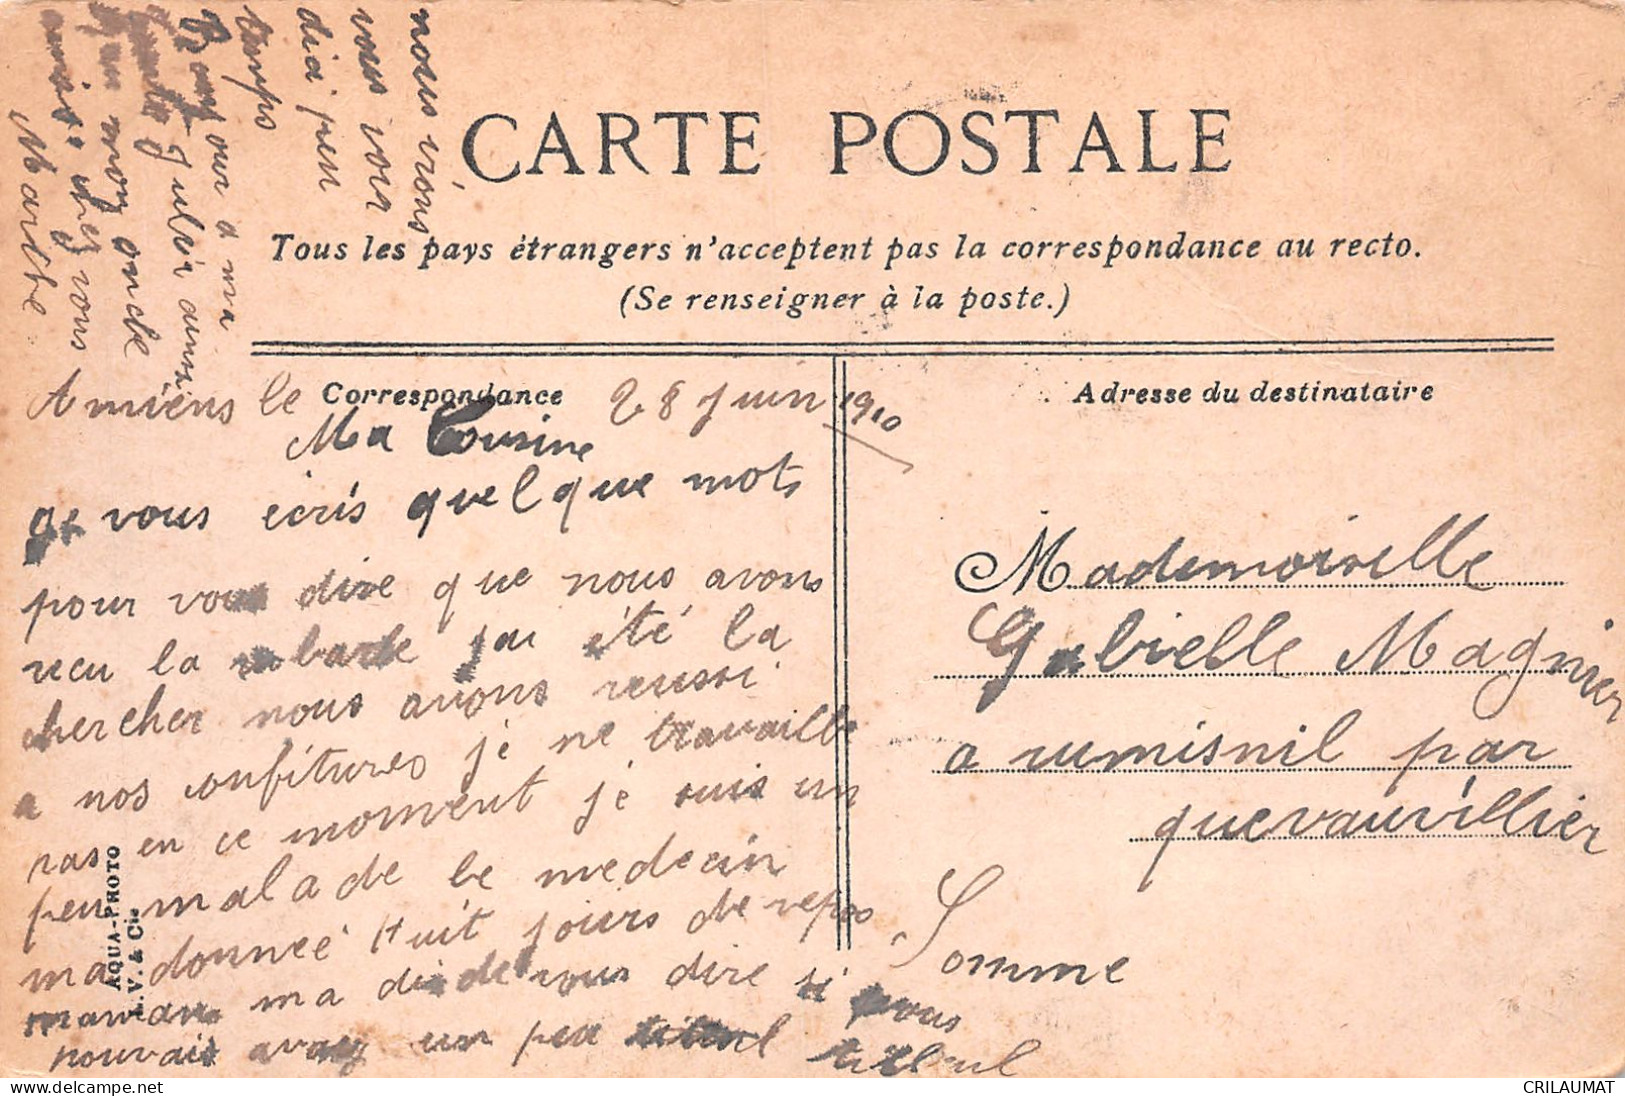 CARTE POSTALE
Tous les pays étrangers n'acceptent pas la correspondance au recto.
(Se renseigner à la poste.)
Correspondance
Adresse du destinataire
Amiens le 28 juin 1910
Ma Cousine
je vous écris quelque mots
pour vous dire que nous avons
recu la jai été la
chercher nous avons reussi
a nos confitures je ne travaille
pas en ce moment je suis un
peu malade le medecin
ma donneé Huit jours de repos
maman ma di de vous dire si vous
pouvais avoy un peu tilleul
nous irons
vous voir
dia peu
temps
Bonjour a ma
Julia aussi
mon oncle
chez vous
Marthe
Mademoiselle
Gabrielle Magnier
a rumisnil par
quevauvillier
Somme
AQUA-PHOTO
L.V. & Cie
CRILAUMAT
delcampe.net